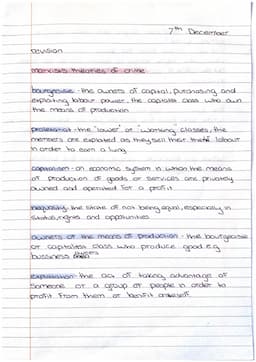 7th December
revision
marxists theories of crime
bourgeoisie - the owners of capital, purchasing and
exploiting labour power, the capitalist class who own
the means of production
proletariat - the "lower" or "working" classes, the
members are exploited as they sell their labour
in order to earn a living
capitalism - an economic system in which the means
of production of goods or services are privately
owned and operated for a profit
inequality - the state of not being equal, especially in
status, rights and opportunities
owners of the means of production - the bourgeoisie
or capitalist class who produce good e.g
bussiness owners
exploitation - the act of taking advantage of
someone or a group of people in order to
profit from them or benifit